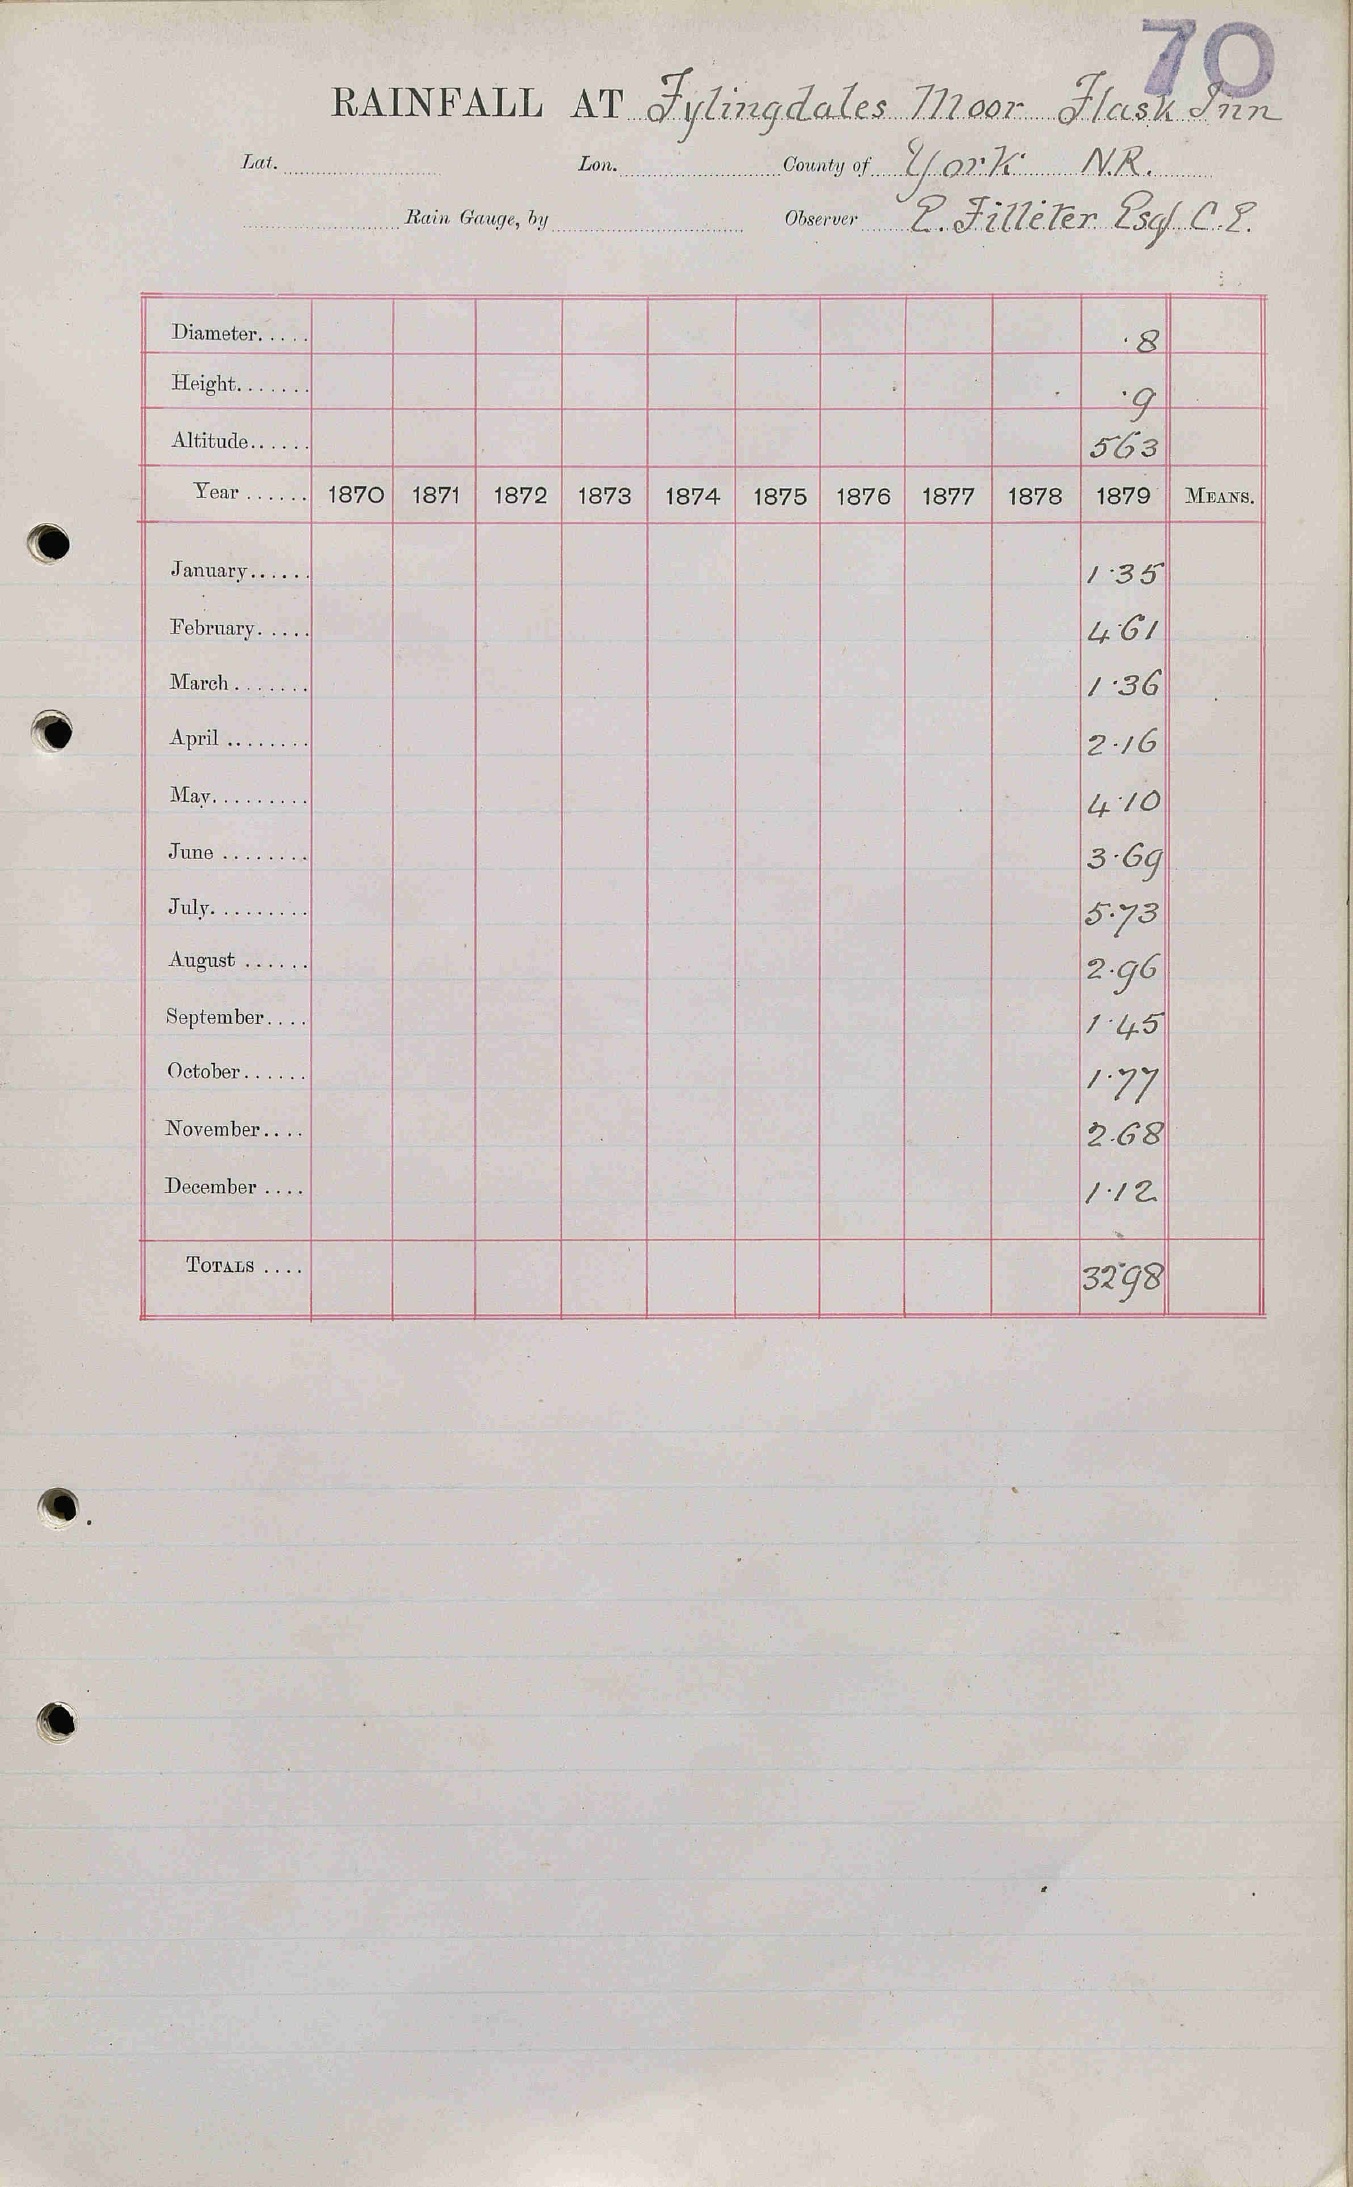 70
RAINFALL AT Fylingdales Moor Flask Inn
Lat. Lon. County of York N.R.
Rain Gauge, by Observer E. Filliter Esq C.E.
Diameter..... ·8
Height....... ·9
Altitude...... 563
Year ...... 1870 1871 1872 1873 1874 1875 1876 1877 1878 1879 MEANS.
January...... 1·35
February..... 4·61
March ....... 1·36
April ........ 2·16
May......... 4·10
June ........ 3·69
July......... 5·73
August ...... 2·96
September.... 1·45
October...... 1·77
November.... 2·68
December .... 1·12
TOTALS .... 32·98